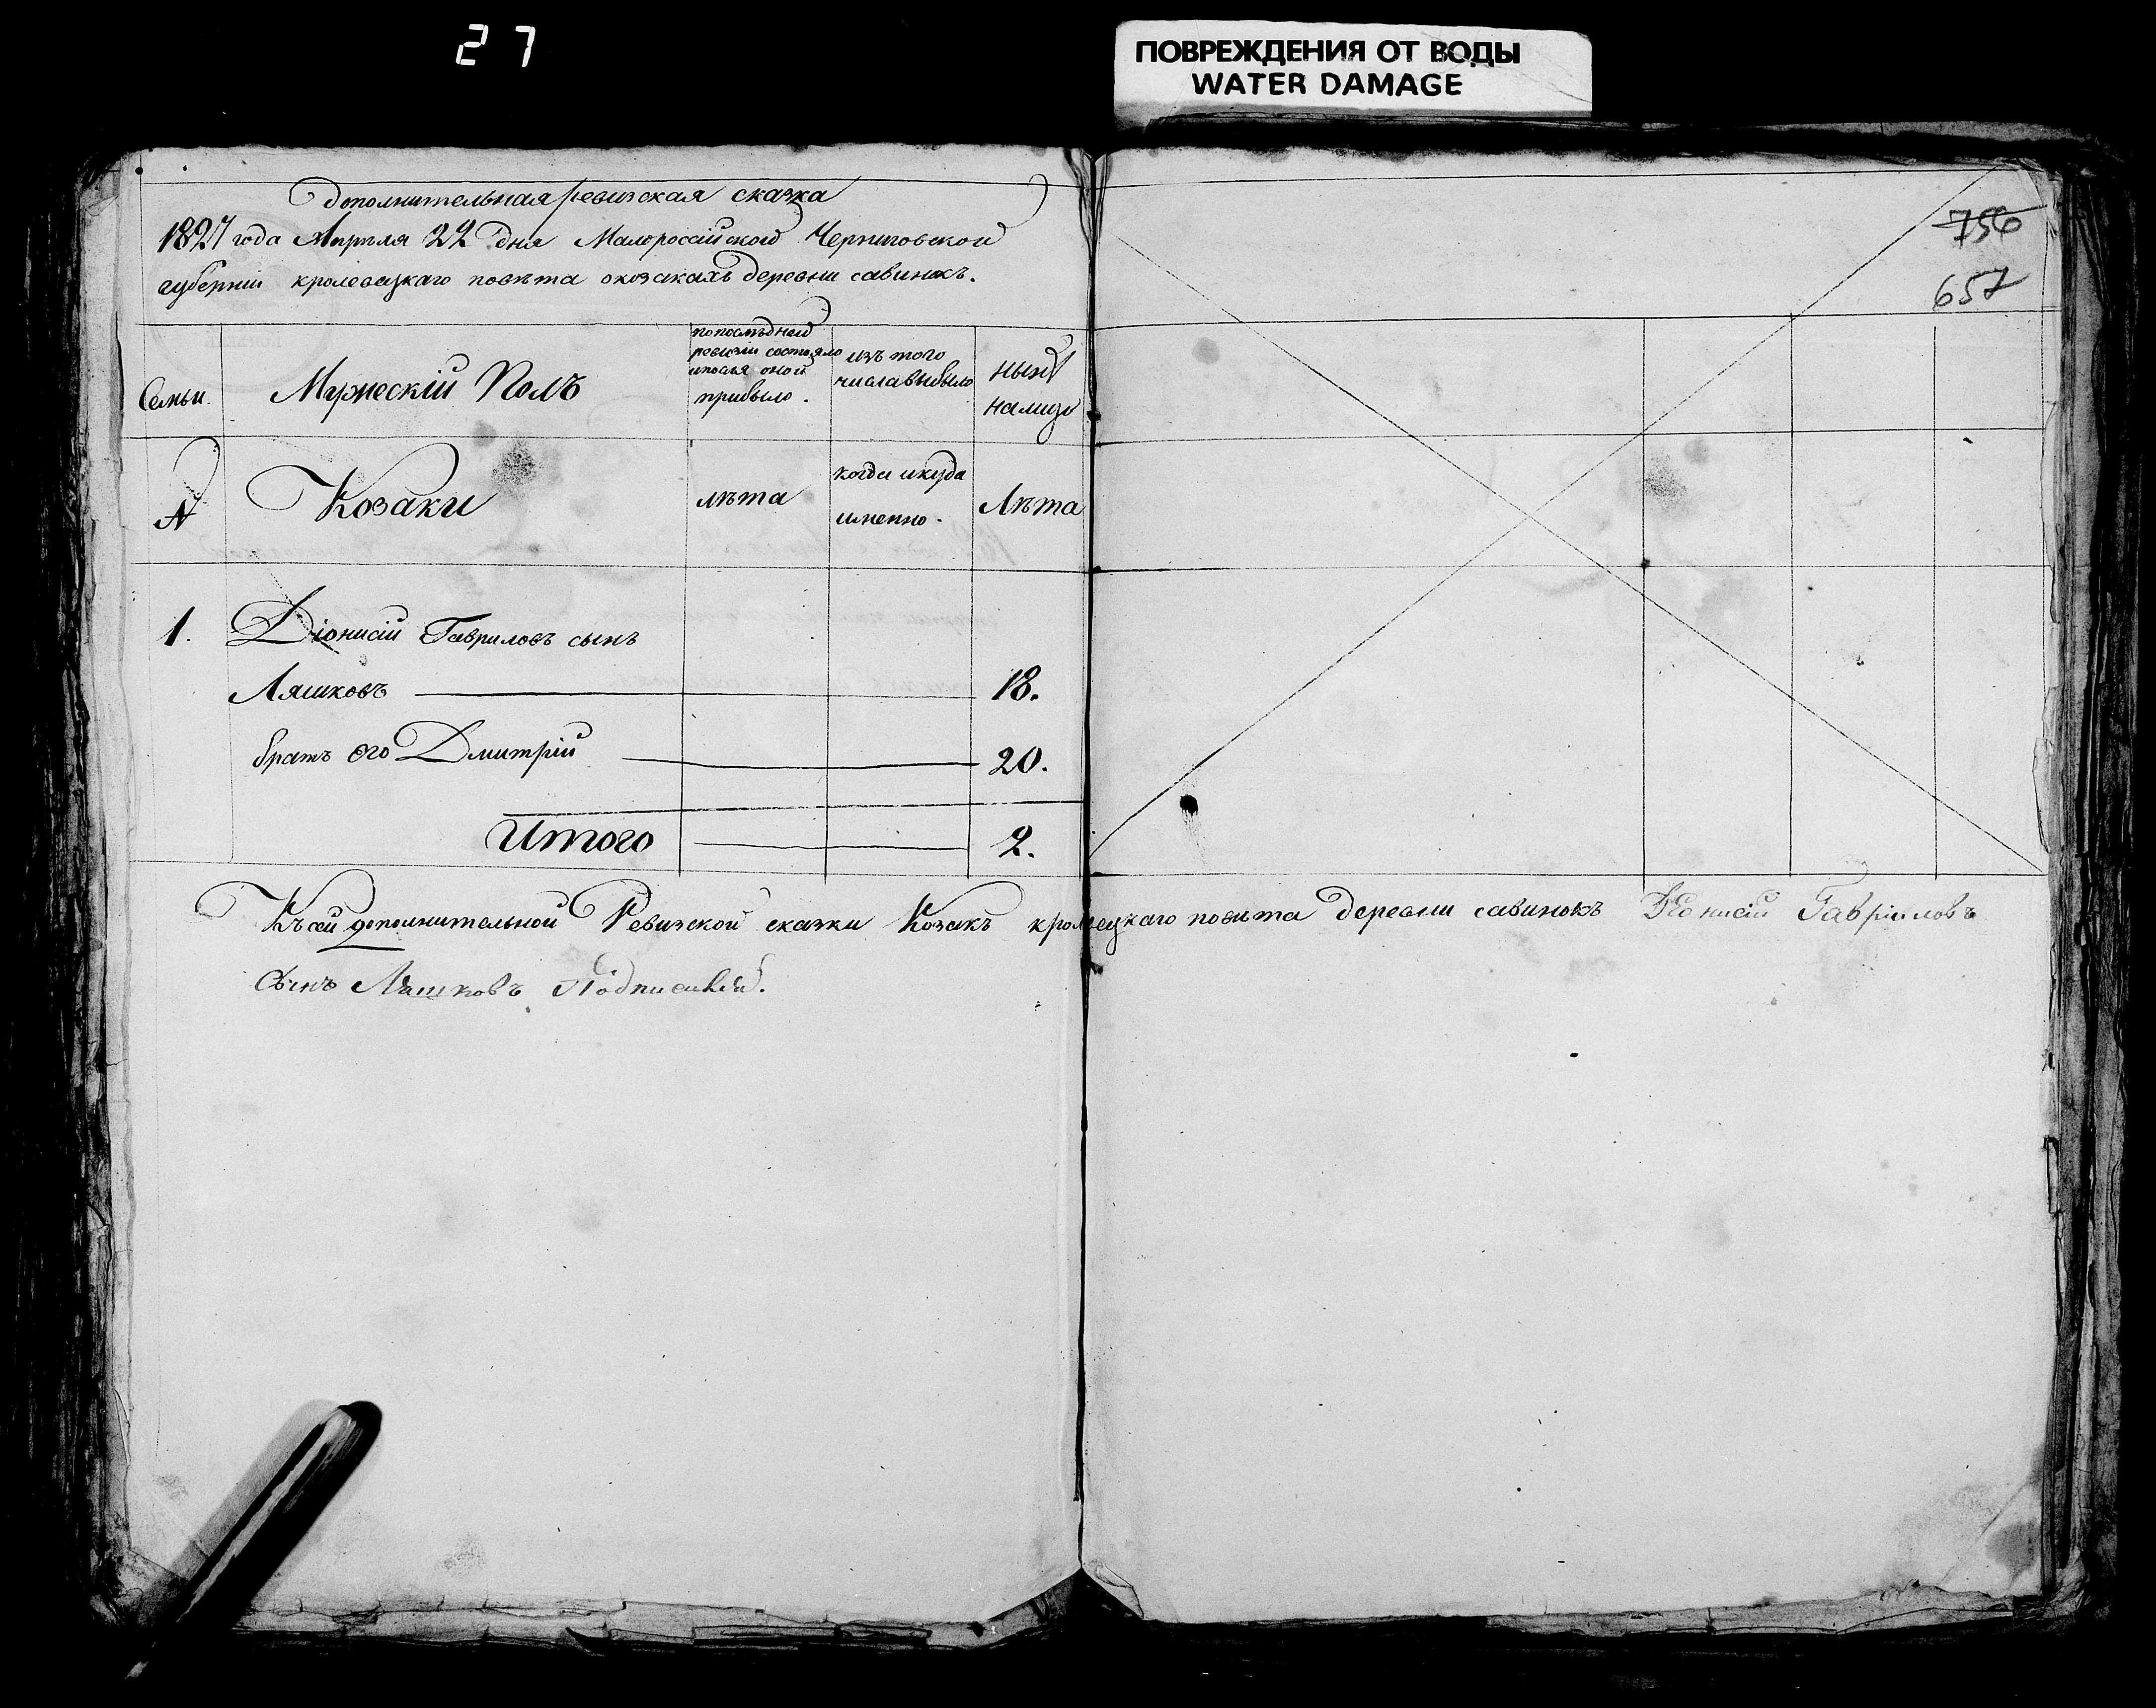 27
ПОВРЕЖДЕНИЯ ОТ ВОДЫ
WATER DAMAGE
Дополнительная ревизская сказка
1827 года Апреля 22 дня Малороссійской Черниговской
губерніи кролевецкаго повѣта окозакахъ деревни савинокъ.
756
657
Семьи.
Мужескій Полъ
попослѣдней
ревизіи состояло
ипосля оной
прибыло.
изъ того
числа выбыло
нынѣ
налицо
№
Козаки
лѣта
когда икуда
именно.
Лѣта
1. Діонисій Гавриловъ сынъ
Ляшковъ 18.
братъ его Дмитрій 20.
Итого 2.
Къ сей дополнительной Ревизской сказки Козакъ кролевецкаго повѣта деревни савинокъ Діонисій Гавриіловъ
Сынъ Ляшковъ